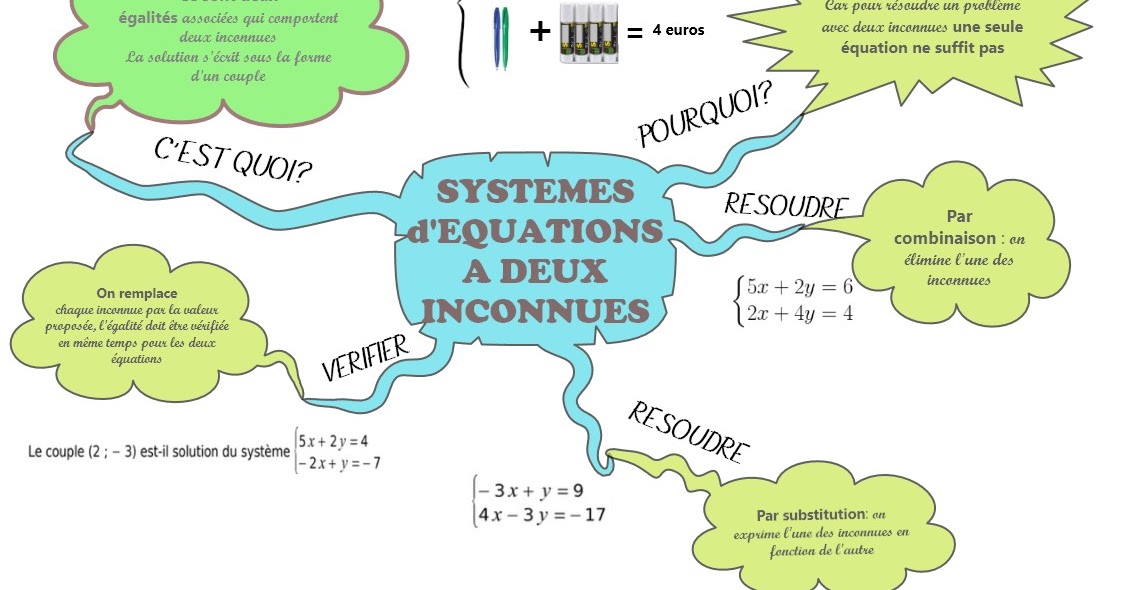 égalités associées qui comportent
deux inconnues
La solution s'écrit sous la forme
d'un couple
+
= 4 euros
Car pour résoudre un problème
avec deux inconnues une seule
équation ne suffit pas
C'EST QUOI?
POURQUOI?
SYSTEMES
d'EQUATIONS
A DEUX
INCONNUES
RESOUDRE
Par
combinaison : on
élimine l'une des
inconnues
5x + 2y = 6
2x + 4y = 4
On remplace
chaque inconnue par la valeur
proposée, l'égalité doit être vérifiée
en même temps pour les deux
équations
VERIFIER
Le couple (2 ; – 3) est-il solution du système
5x + 2y = 4
– 2x + y = – 7
RESOUDRE
– 3x + y = 9
4x – 3y = – 17
Par substitution: on
exprime l'une des inconnues en
fonction de l'autre